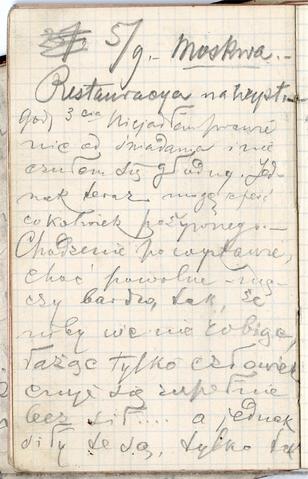 5/9. Moskwa.-
Restauracya na wyst.
godz 3cia Nie jadłam prawie
nic od śniadania i nie
czułam się głodną. Jed-
nak teraz mogę zjeść
cokolwiek pożywnego.-
Chodzenie po wystawie,
choć powolne - mę-
czy bardzo, tak, że
niby we nie robiąc
łażąc tylko człowiek
czuje się zupełnie
bez sił.... a jednak
siły te są, tylko